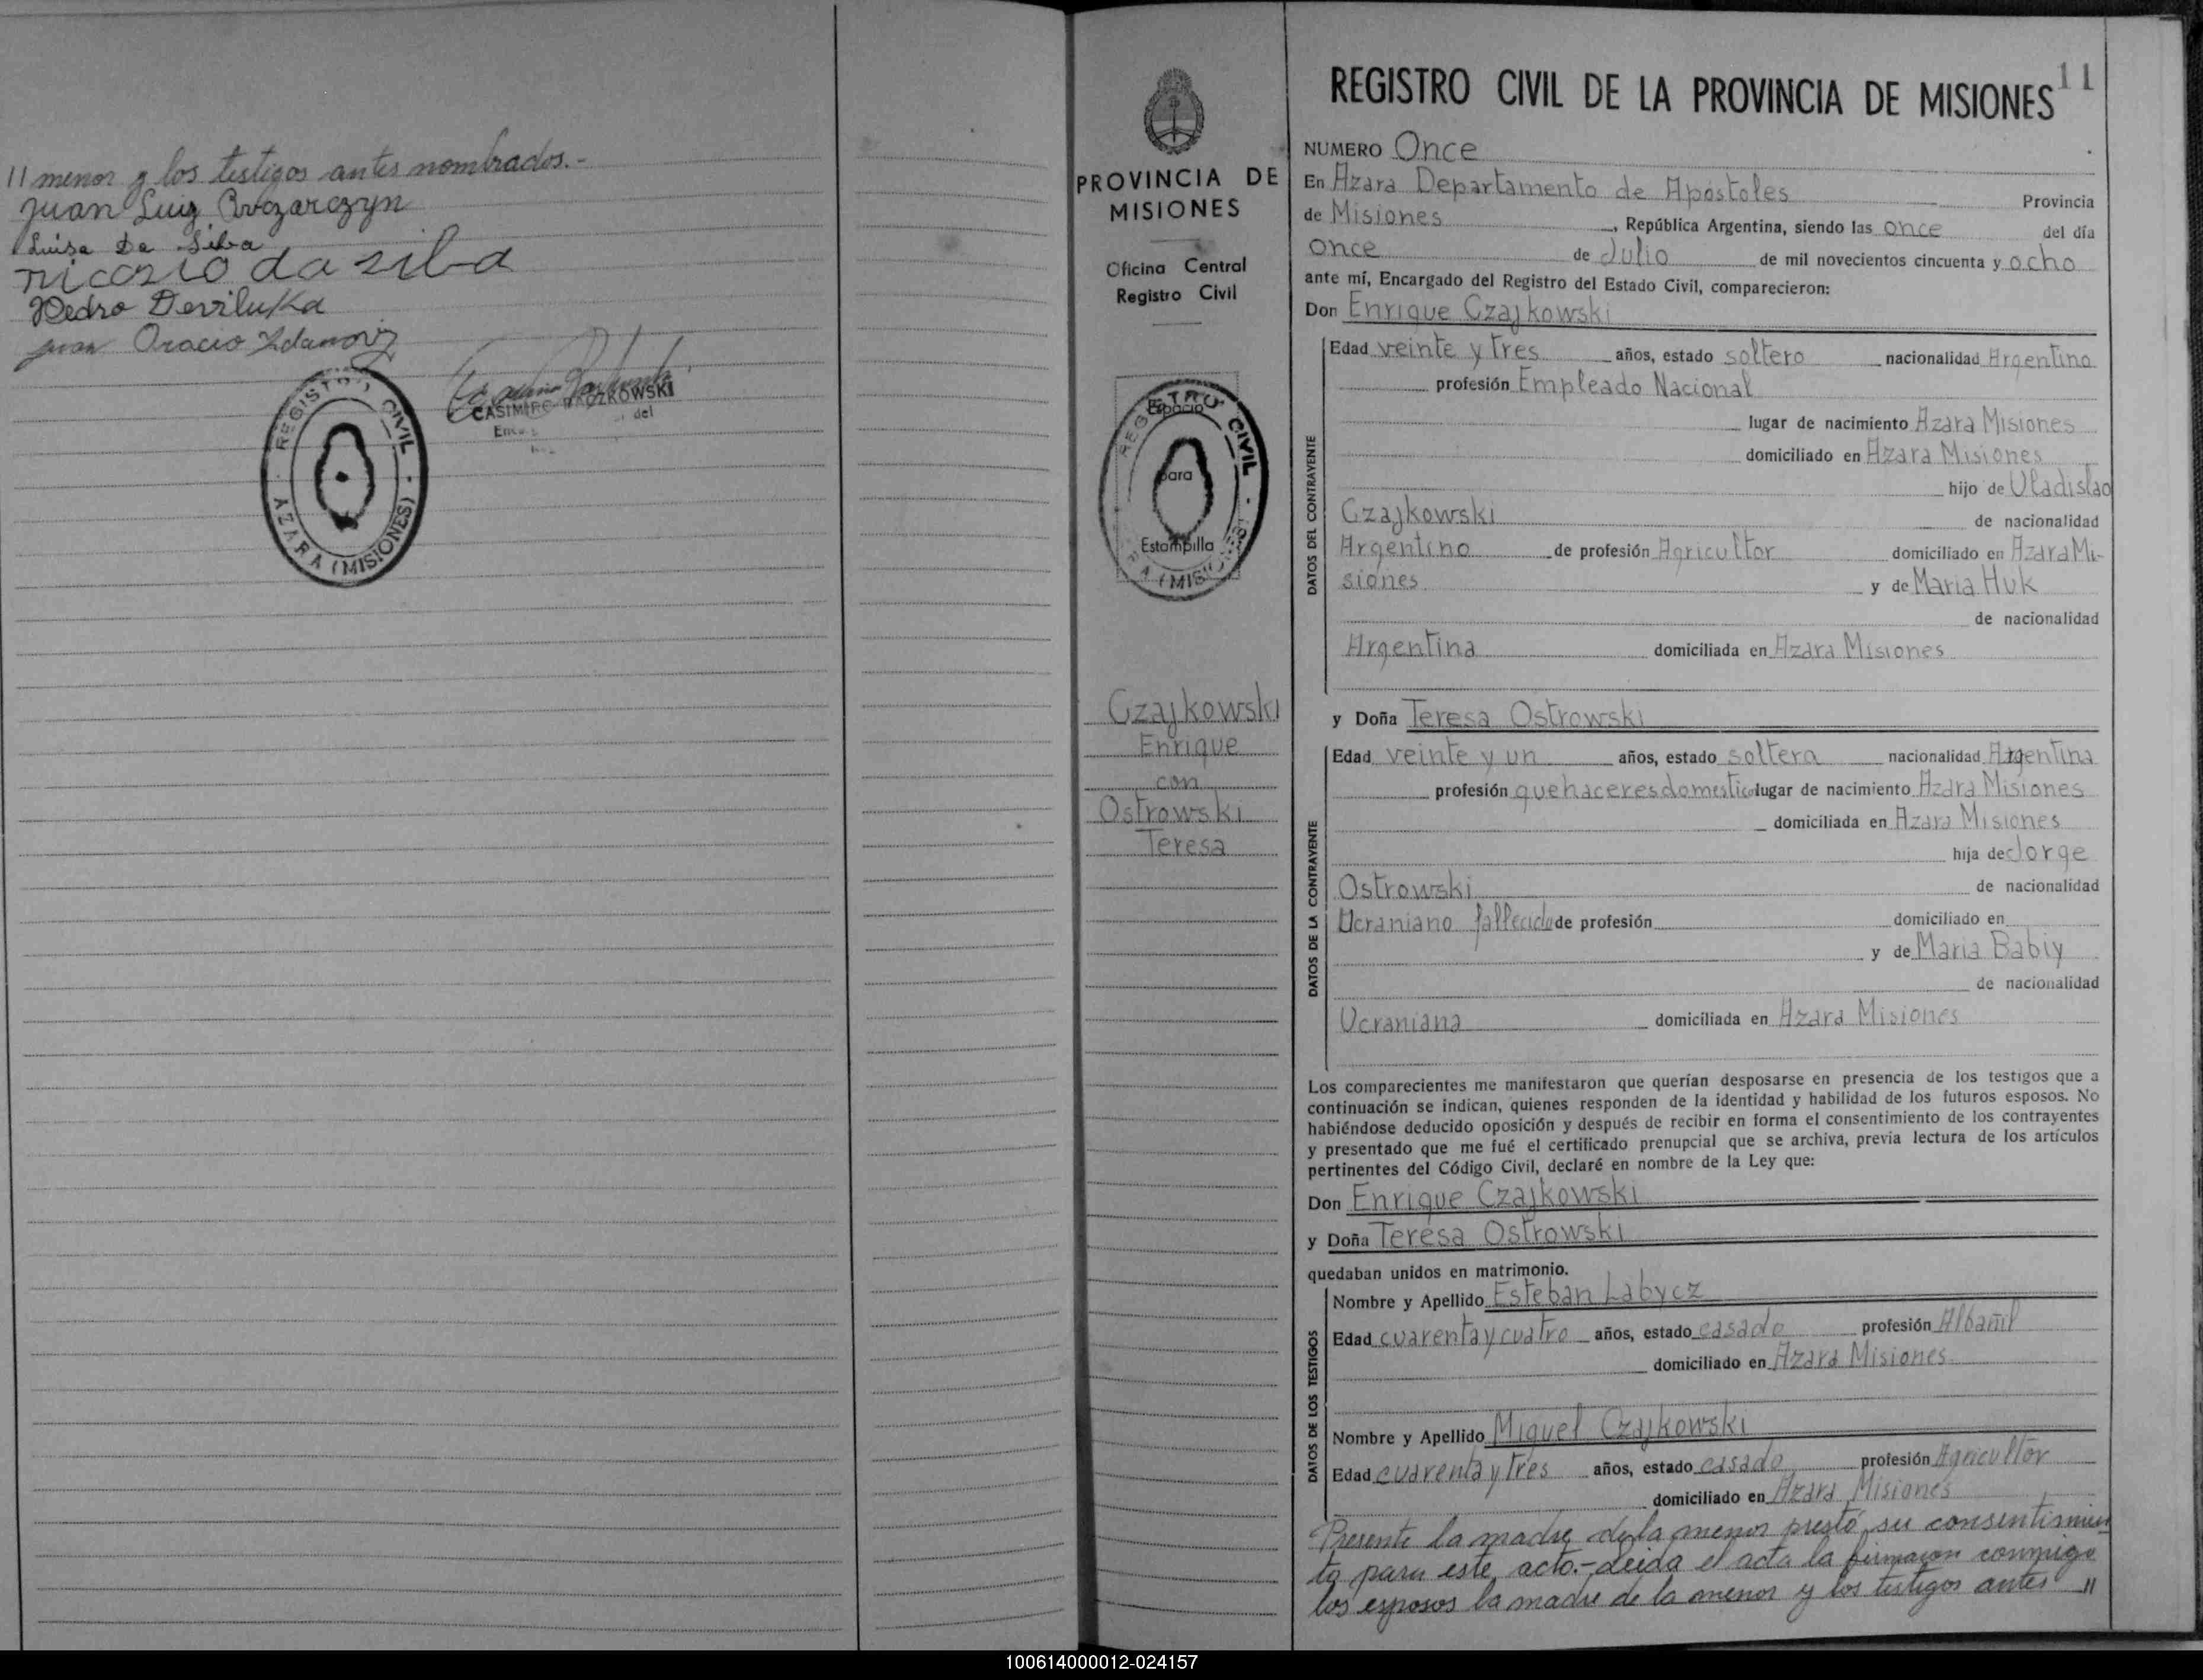 11 menor y los testigos antes nombrados.-
Juan Luiz
Luisa Da Silva
nicasio da silba
Pedro Deviluka
Juan Oracio Zdanoviz
CASIMIRO
del
REGISTRO CIVIL
AZARA (MISIONES)
PROVINCIA DE
MISIONES
Oficina Central
Registro Civil
REGISTRO CIVIL
Espacio
para
Estampilla
Czajkowski
Enrique
con
Ostrowski
Teresa
11
REGISTRO CIVIL DE LA PROVINCIA DE MISIONES
NUMERO Once
En Azara Departamento de Apóstoles Provincia
de Misiones, República Argentina, siendo las once del día
once de Julio de mil novecientos cincuenta y ocho
ante mí, Encargado del Registro del Estado Civil, comparecieron:
Don Enrique Czajkowski
DATOS DEL CONTRAYENTE
Edad veinte y tres años, estado soltero nacionalidad Argentina
profesión Empleado Nacional
lugar de nacimiento Azara Misiones
domiciliado en Azara Misiones
hijo de Vladislao
Czajkowski de nacionalidad
Argentino de profesión Agricultor domiciliado en Azara Mi-
siones y de Maria Huk
de nacionalidad
Argentina domiciliada en Azara Misiones
y Doña Teresa Ostrowski
DATOS DE LA CONTRAYENTE
Edad veinte y un años, estado soltera nacionalidad Argentina
profesión quehaceres domestico lugar de nacimiento Azara Misiones
domiciliada en Azara Misiones
hija de Jorge
Ostrowski de nacionalidad
Ucraniano fallecido de profesión domiciliado en
y de Maria Babiy
de nacionalidad
Ucraniana domiciliada en Azara Misiones
Los comparecientes me manifestaron que querían desposarse en presencia de los testigos que a
continuación se indican, quienes responden de la identidad y habilidad de los futuros esposos. No
habiéndose deducido oposición y después de recibir en forma el consentimiento de los contrayentes
y presentado que me fué el certificado prenupcial que se archiva, previa lectura de los artículos
pertinentes del Código Civil, declaré en nombre de la Ley que:
Don Enrique Czajkowski
y Doña Teresa Ostrowski
quedaban unidos en matrimonio.
DATOS DE LOS TESTIGOS
Nombre y Apellido Esteban Labycz
Edad cuarenta y cuatro años, estado casado profesión Albañil
domiciliado en Azara Misiones
Nombre y Apellido Miguel Czajkowski
Edad cuarenta y tres años, estado casado profesión Agricultor
domiciliado en Azara Misiones
Presente la madre de la menor prestó su consentimien
to para este acto.- Leida el acta la firmaron conmigo
los esposos la madre de la menor y los testigos antes 11
100614000012-024157